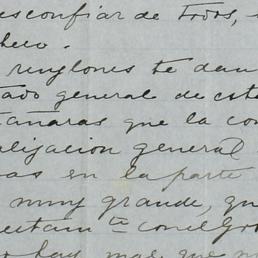 desconfiar de todos,
checo.
renglones te dan
tado general de este
tañaras que la con
alijacion general
as en la parte
muy grande, que
ectam.te con el Gro
hay mas que